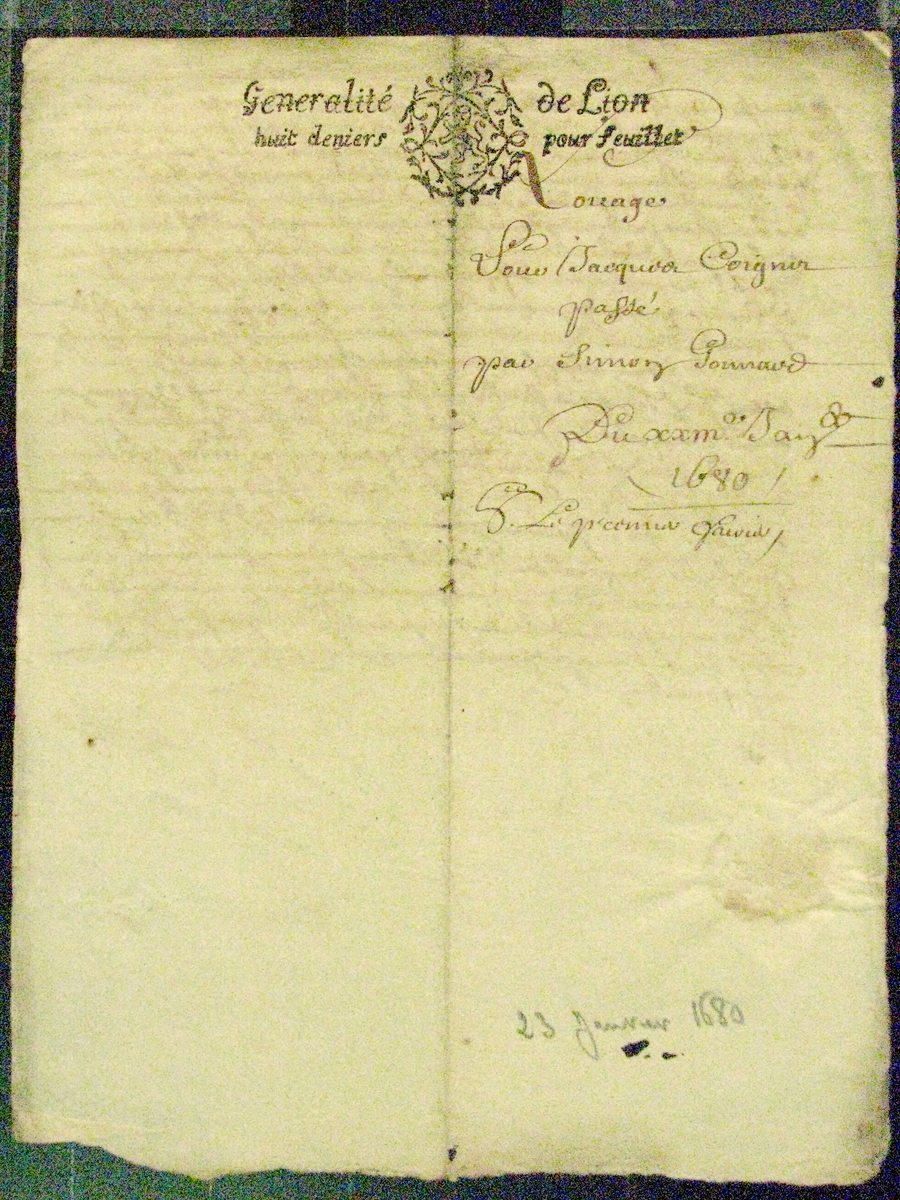 Generalité de Lion
huit deniers pour feuillet
Louage
Pour Jacques Coignir
passé
par Simon Ponnard
Du xxiii.e Janv.er
1680
Le premier
23 Janvier 1680